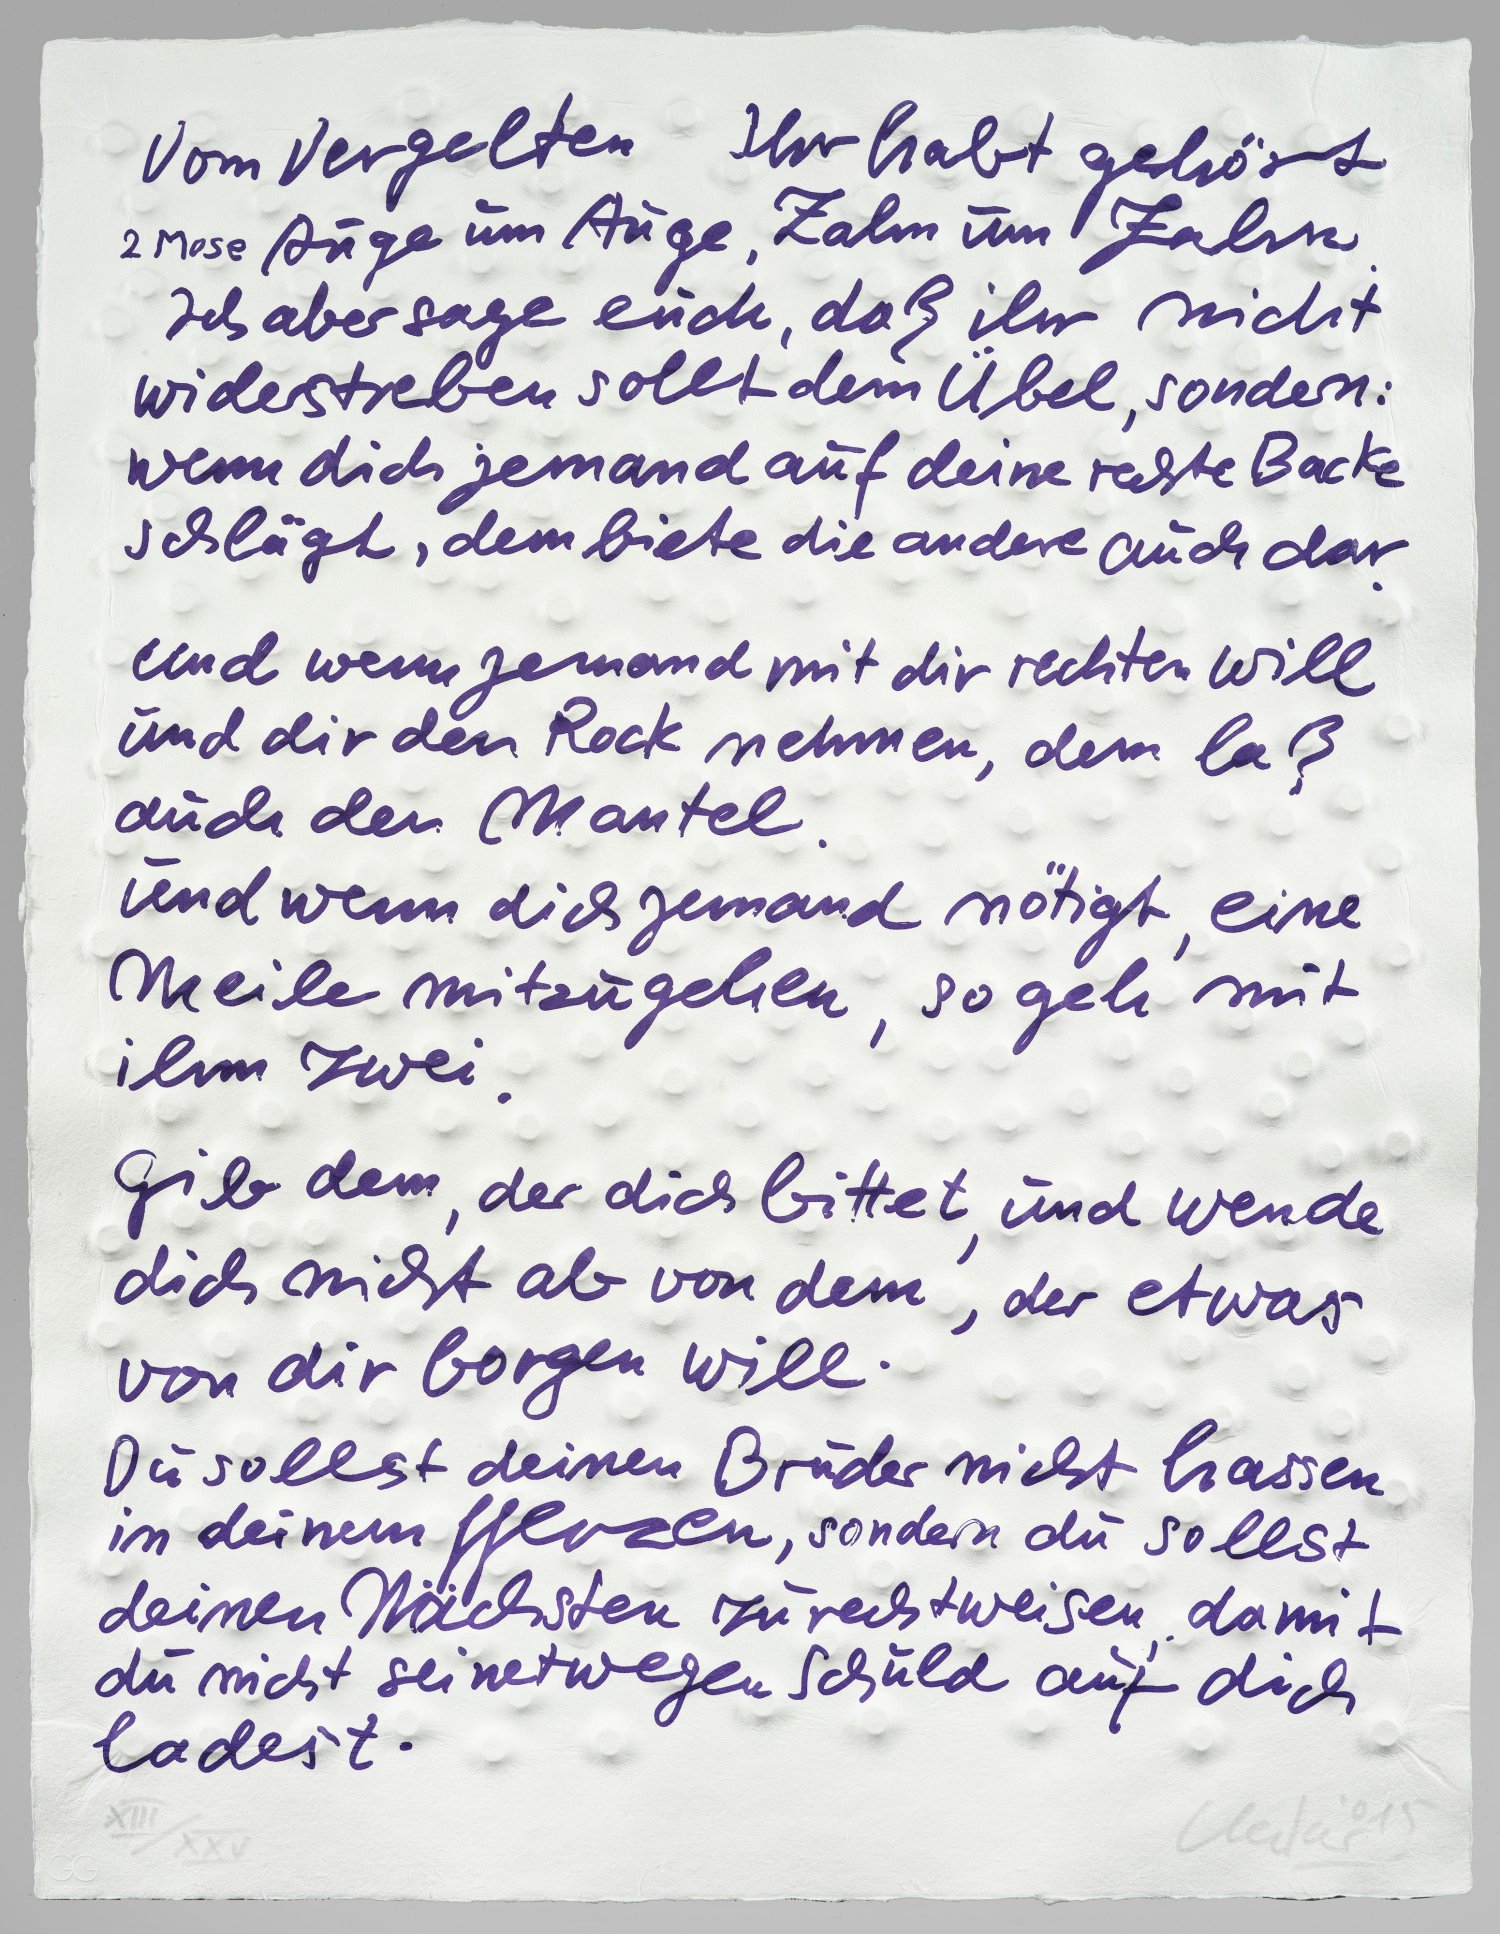 Vom Vergelten Ihr habt gehört
2 Mose Auge um Auge, Zahn um Zahn.
Ich aber sage euch, daß ihr nicht
widerstreben sollt dem Übel, sondern:
wenn dich jemand auf deine rechte Backe
schlägt, dem biete die andere auch dar.
und wenn jemand mit dir rechten will
und dir den Rock nehmen, dem laß
auch den Mantel.
und wenn dich jemand nötigt, eine
Meile mitzugehen, so geh mit
ihm zwei.
Gib dem, der dich bittet, und wende
dich nicht ab von dem, der etwas
von dir borgen will.
Du sollst deinen Bruder nicht hassen
in deinem Herzen, sondern du sollst
deinen Nächsten zurechtweisen, damit
du nicht seinetwegen Schuld auf dich
ladest.
XIII/XXV
Uecker 015
GG